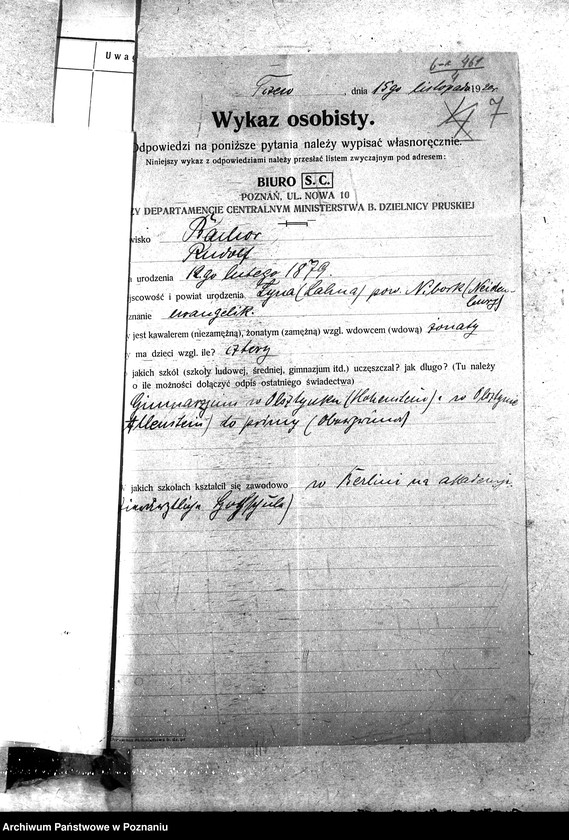 Uwa
6-a 461
4
Tczew, dnia 15go listopada 1920r.
7
Wykaz osobisty.
Odpowiedzi na poniższe pytania należy wypisać własnoręcznie.
Niniejszy wykaz z odpowiedziami należy przesłać listem zwyczajnym pod adresem:
BIURO S. C.
POZNAŃ, UL. NOWA 10
ZY DEPARTAMENCIE CENTRALNYM MINISTERSTWA B. DZIELNICY PRUSKIEJ
wisko
Rudolf
urodzenia 12go lutego 1879.
jscowość i powiat urodzenia Łyna (Lahna) pow. Nibork (Neiden-
burg)
znanie ewangelik.
y jest kawalerem (niezamężną), żonatym (zamężną) wzgl. wdowcem (wdową) żonaty
y ma dzieci wzgl. ile? cztery
jakich szkół (szkoły ludowej, średniej, gimnazjum itd.) uczęszczał? jak długo? (Tu należy
o ile możności dołączyć odpis ostatniego świadectwa)
Gimnazyum w Olsztynku (Hohenstein) i w Olsztynie
Allenstein) do primy (Oberprima)
jakich szkołach kształcił się zawodowo w Berlinie na akademji
tierärztliche Hochschule)
Archiwum Państwowe w Poznaniu